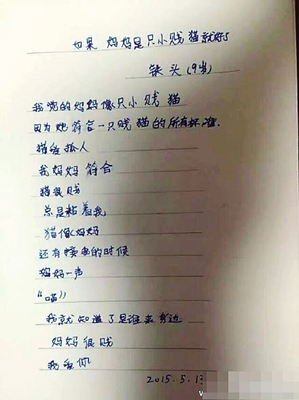 如果 妈妈是只小贱猫就好了
铁头(9岁)
我觉的妈妈像只小贱猫
因为她符合一只贱猫的所有标准.
猫会抓人
我妈妈符合
猫很贱
总是粘着我
猫像妈妈
还有接电的时候
妈妈一步
“喵”
我就知道了是谁在旁边
妈妈很贱
我爱你
2015.5.13